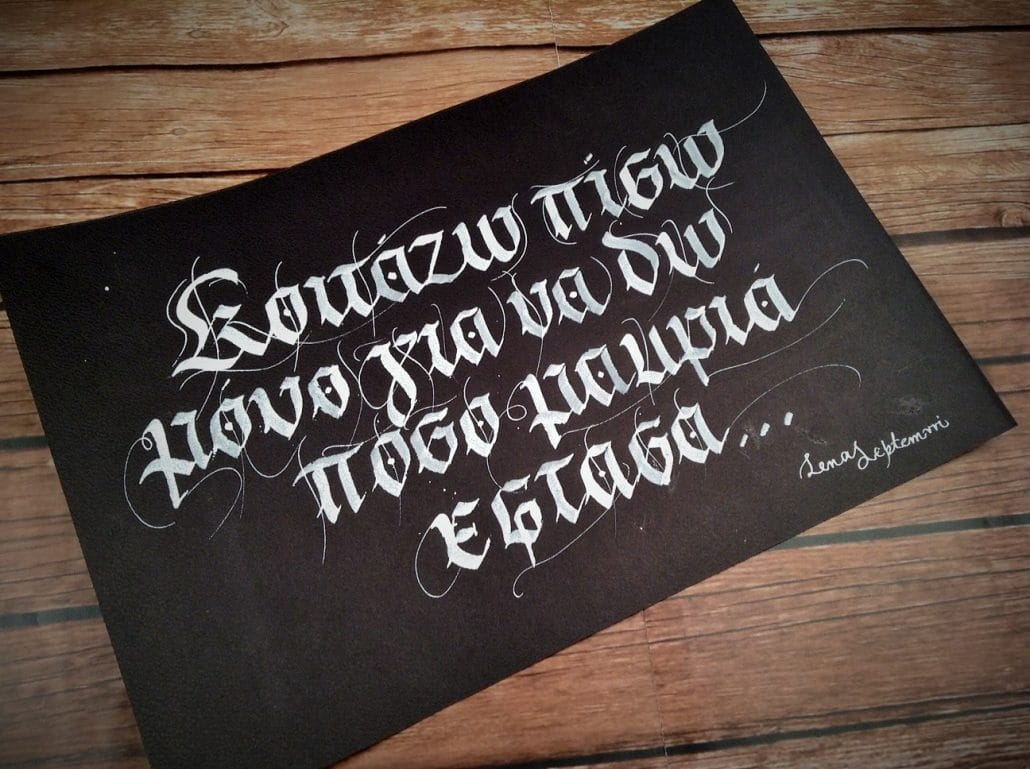 Κοιτάζω πίσω
μόνο για να δω
πόσο μακριά
Εφτασα...
Lena